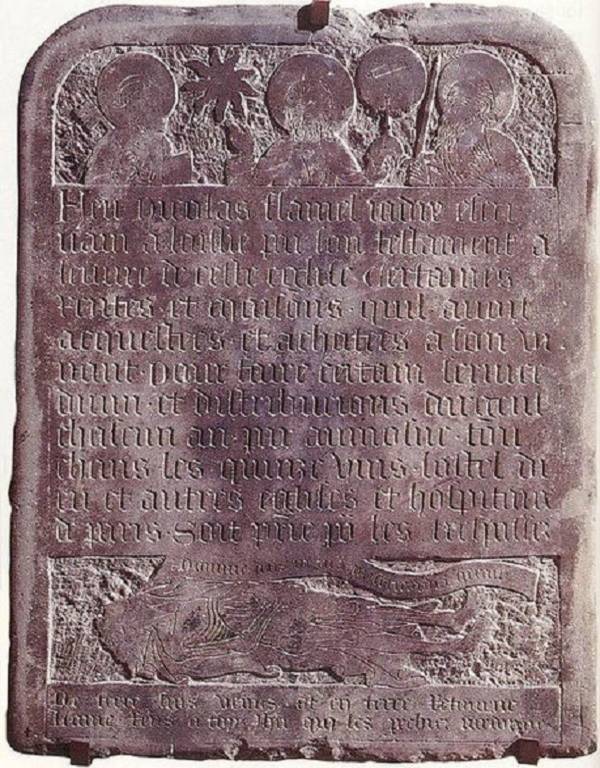 Feu nicolas flamel jadis escri
uain a laissie par son testament a
leuure de ceste eglise certaines
rentes et maisons quil auoit
acquestees et achetees a son vi
uant pour faire certain seruice
diuin et distribucions dargent
chascun an par aumosne tou
chans les quinze vins lostel di
eu et autres eglises et hospitaux
de paris Soit prie po les trespasses
Domine
De terre suis venus et en terre retourne
lame rens a toy Jhu qui les pechiez pardonne